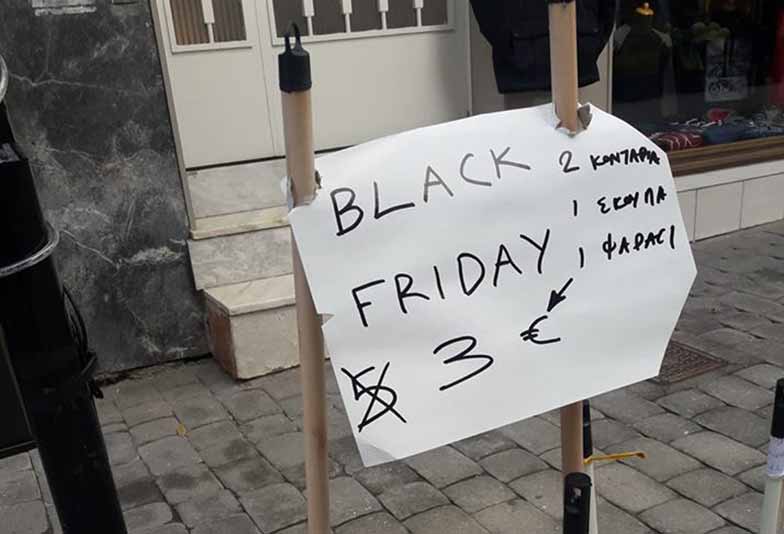 BLACK
FRIDAY
5 3 €
2 ΚΟΝΤΑΡΙΑ
1 ΣΚΟΥΠΑ
1 ΦΑΡΑΣΙ